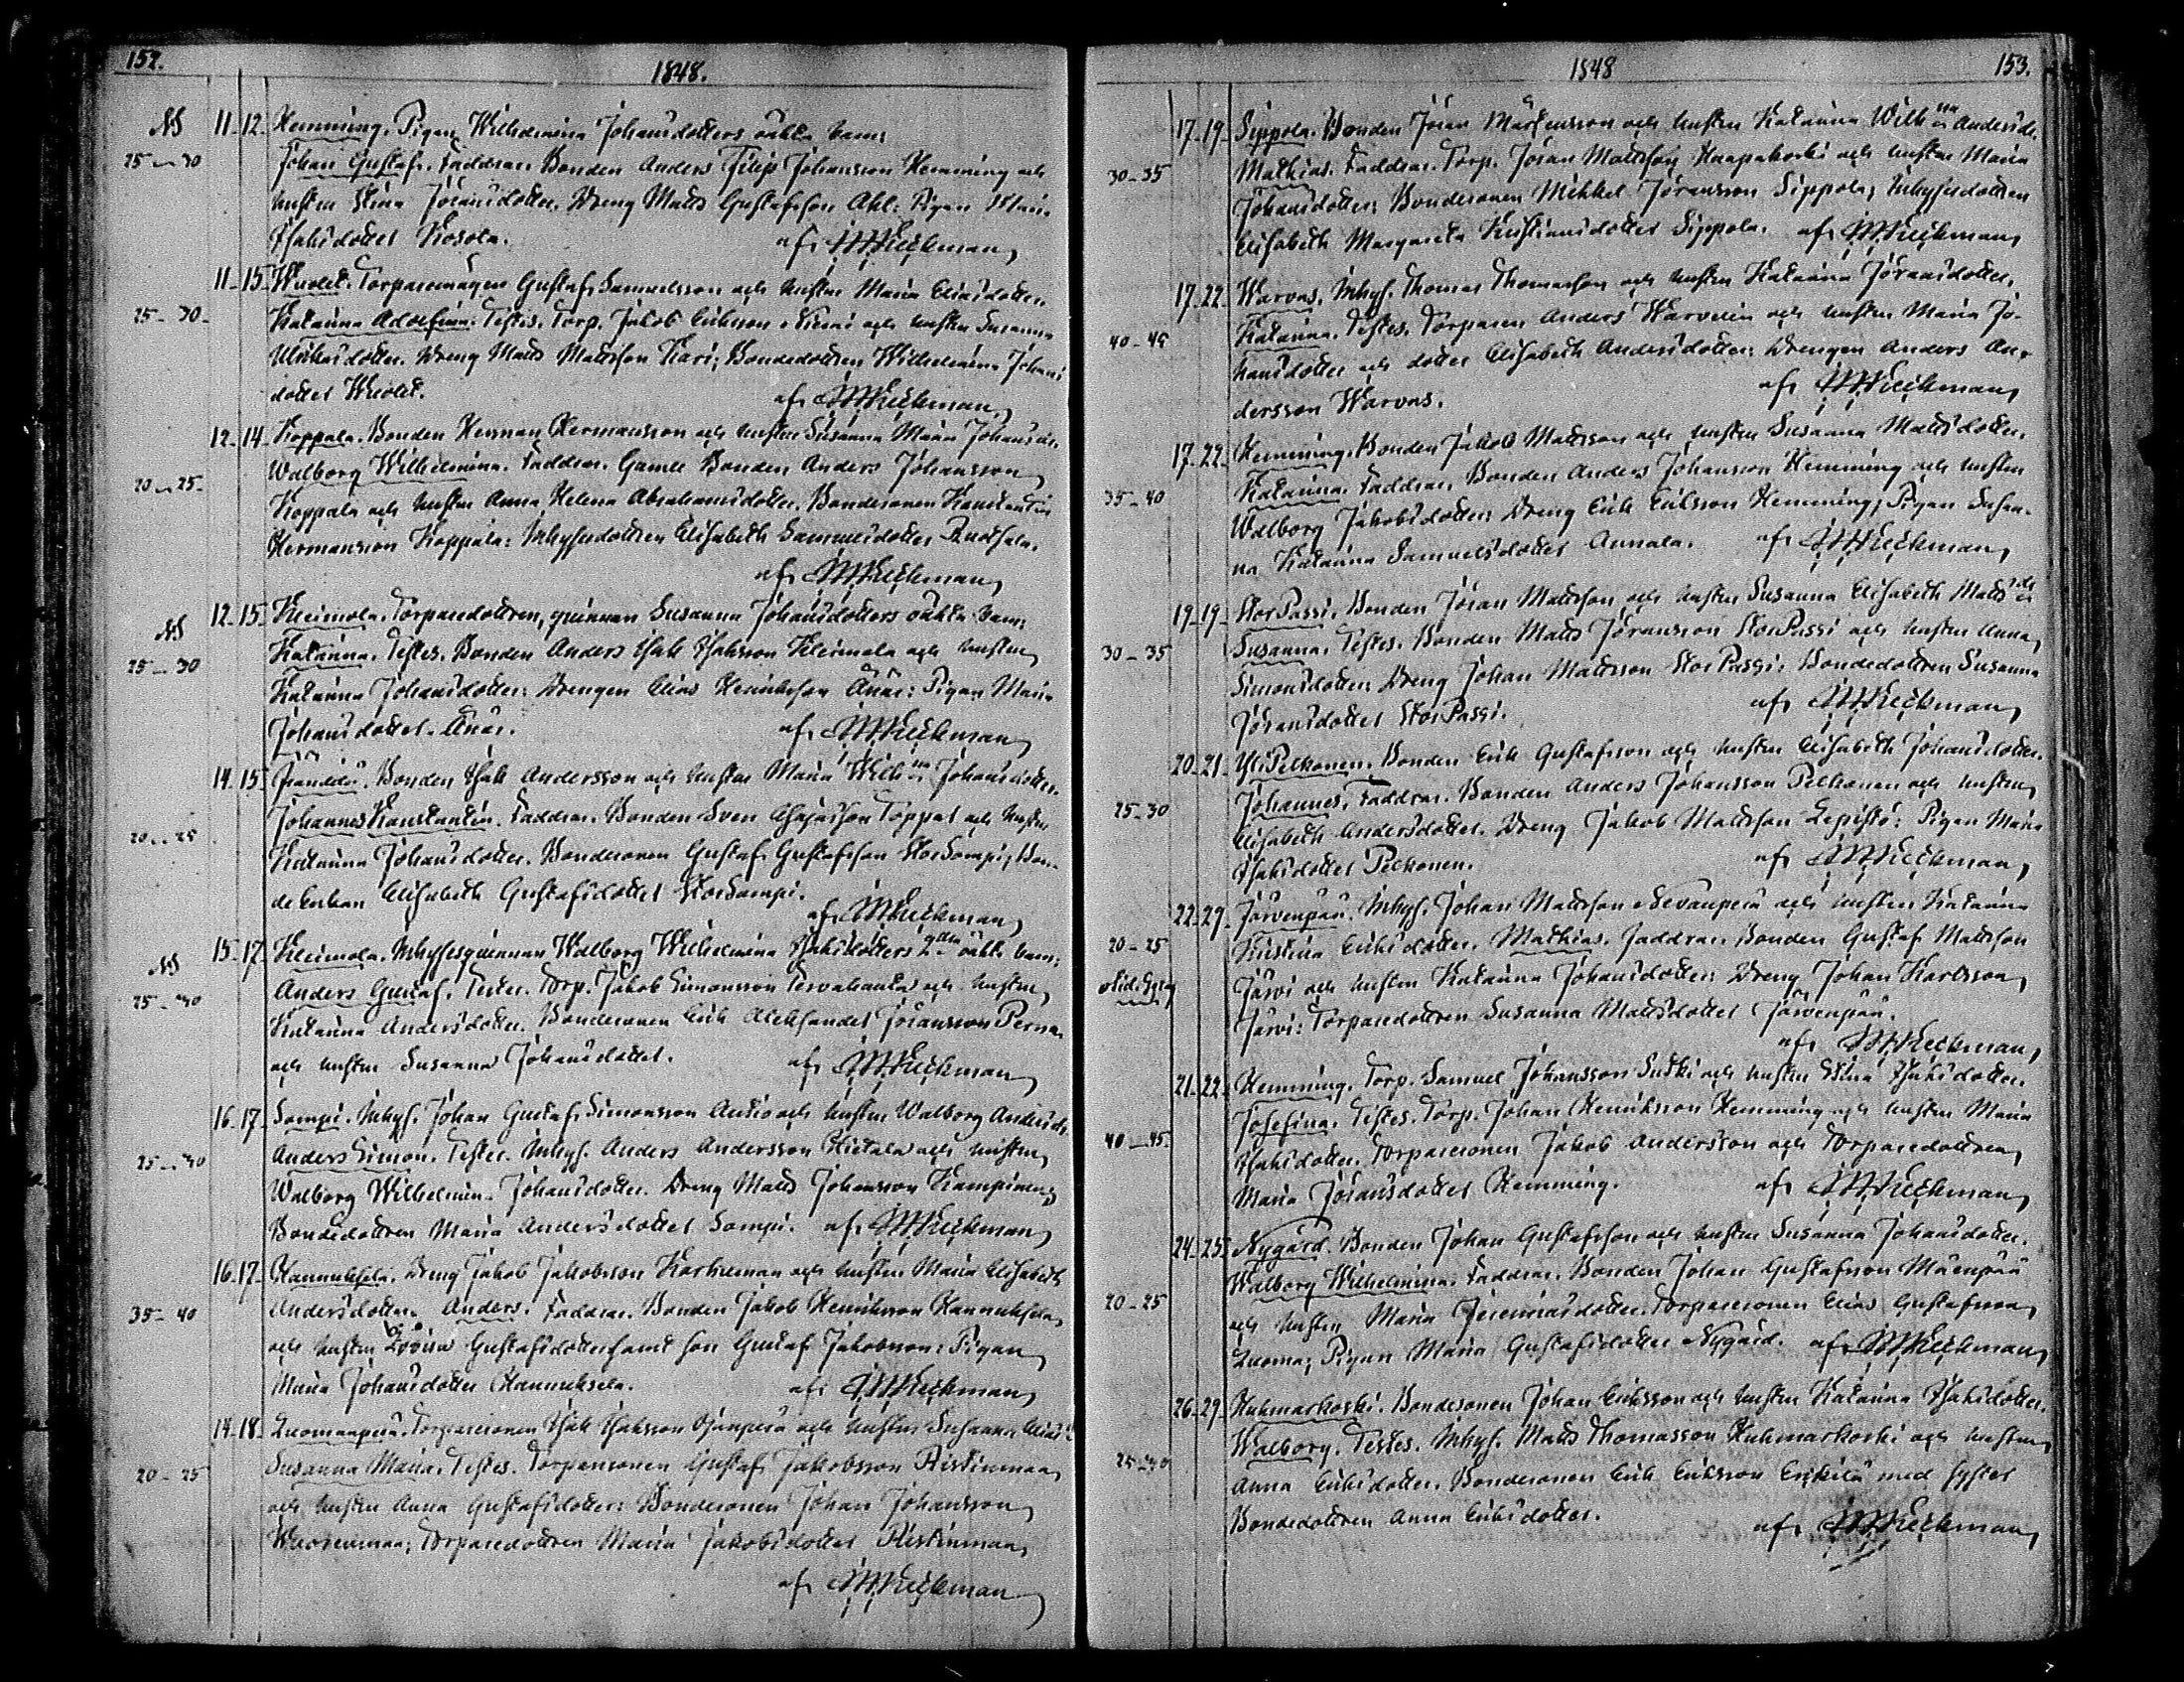 152.
1848.
NS 11-12. Hemming. Pigan Wilhelmina Johansdotters oäkta barn:
25-30 Johan Gustaf. Faddrar. Bonden Anders Filip Johansson Hemming och
hustru Stina Jöransdotter. Dreng Matts Gustafsson Ahl: Pigan Maria
Isaksdotter Kosola. af J.M.Keckman
11-15. Torparemågen Gustaf Samuelsson och hustru Maria Eliasdotter.
25-30- Katarina Adolfina. Testes. Torp. Jakob Eriksson och hustru Susanna
Dreng Matts Mattsson Kari; Bondedottren Wilhelmina Johans
dotter af J.M.Keckman
12-14. Koppala. Bonden Herman Hermansson och hustru Susanna Maria Johansdr.
20-25- Walborg Wilhelmina. Faddrar. Gamle Bonden Anders Johansson
Koppala och hustru Anna Helena Abrahamsdotter. Bondesonen Konstantin
Hermansson Koppala: Inhysesdottren Elisabeth Samuelsdotter
af J.M.Keckman
NS 12-15. Kleimola. Torparedottren, quinnan Susanna Johansdotters oäkta barn:
25-30 Katarina. Testes. Bonden Anders Isak Isaksson Kleimola och hustru
Katarina Johansdotter: Drengen Elias Henriksson Pigan Maria
Johansdotter af J.M.Keckman
14-15. Bonden Isak Andersson och hustru Maria Wilh:na Johansdotter.
20-25 Johannes Konstantin. Faddrar. Bonden Sven Töppar och hustru
Katarina Johansdotter. Bondesonen Gustaf Gustafsson StorSompi, Bon-
de Enkan Elisabeth Gustafsdotter StorSompi.
af J.M.Keckman
NS 15-17. Kleimola. Inhysesquinnan Walborg Wilhelmina Isaksdotters 2:dra oäkta barn:
25-30 Anders Gustaf. Testes. Torp. Jakob Simonsson och hustru
Katarina Andersdotter. Bondesonen Erik Alexander Jöransson Perna
och hustru Susanna Johansdotter. af J.M.Keckman
16-17. Sompi. Inhys. Johan Gustaf Simonsson Antio och hustru Walborg Andersdr.
25-30 Anders Simon. Testes. Inhys. Anders Andersson Hietala och hustru
Walborg Wilhelmina Johansdotter. Dreng Matts Johansson
Bondedottren Maria Andersdotter Sompi. af J.M.Keckman
16-17. Hannuksela. Dreng Jakob Jakobsson och hustru Maria Elisabeth
35-40 Andersdotter. Anders. Faddrar. Bonden Jakob Henriksson Hannuksela
och hustru Lovisa Gustafsdotter samt son Gustaf Jakobsson: Pigan
Maria Johansdotter Hannuksela. af J.M.Keckman
14-18. Luomanperä. Torparesonen Isak Isaksson och hustru Susanna
20-25 Susanna Maria. Testes. Torparesonen Gustaf Jakobsson Ristinmaa
och hustru Anna Gustafsdotter: Bondesonen Johan Johansson
Torparedottren Maria Jakobsdotter Ristinmaa
af J.M.Keckman
1848
153.
17-19. Sippola. Bonden Jöran Mårtensson och hustru Katarina Wilh:na Andersdr.
30-35 Mathias. Faddrar. Torp. Jöran Mattsson Haapakoski och hustru Maria
Johansdotter: Bondesonen Mikkel Jöransson Sippola; Inhysesdottren
Elisabeth Margareta Kristiansdotter Sippola. af J.M.Keckman
17-22. Warvas. Inhys. Thomas Thomasson och hustru Katarina Jöransdotter.
40-45 Katarina. Testes. Torparen Anders Warvas och hustru Maria Jo-
hansdotter och dotter Elisabeth Andersdotter: Drengen Anders An-
dersson Warvas. af J.M.Keckman
17-22. Hemming. Bonden Jakob Mattsson och hustru Susanna Mattsdotter.
35-40 Katarina. Faddrar. Bonden Anders Johansson Hemming och hustru
Walborg Jakobsdotter: Dreng Erik Eriksson Hemming; Pigan Susan-
na Katarina Samuelsdotter Annala. af J.M.Keckman
19-19. StorPassi. Bonden Jöran Mattsson och hustru Susanna Elisabeth Mattsdr
30-35 Susanna. Testes. Bonden Matts Jöransson StorPassi och hustru Anna
Simonsdotter: Dreng Johan Mattsson StorPassi; Bondedottren Susanna
Jöransdotter StorPassi. af J.M.Keckman
20-21. YliPelkonen. Bonden Erik Gustafsson och hustru Elisabeth Johansdotter.
25-30 Johannes. Faddrar. Bonden Anders Johansson Pelkonen och hustru
Elisabeth Andersdotter. Dreng Jakob Mattsson Lepistö: Pigan Maria
Isaksdotter Pelkonen. af J.M.Keckman
22-29. Järvenpää. Inhys. Johan Mattsson Nevanperä och hustru Katarina
20-25 Kristina Eriksdotter. Mathias. Faddrar. Bonden Gustaf Mattsson
Järvi och hustru Katarina Johansdotter: Dreng Johan Karlsson
Järvi: Torparedottren Susanna Mattsdotter Järvenpää.
af J.M.Keckman
21-22. Hemming. Torp. Samuel Johansson och hustru Stina Isaksdotter.
40-45. Josefina. Testes. Torp. Johan Henriksson Hemming och hustru Maria
Isaksdotter. Torparesonen Jakob Andersson och Torparedottren
Maria Jöransdotter Hemming. af J.M.Keckman
24-25. Nygård. Bonden Johan Gustafsson och hustru Susanna Johansdotter.
20-25 Walborg Wilhelmina. Faddrar. Bonden Johan Gustafsson Mäenpää
och hustru Maria Jeremiasdotter. Torparesonen Elias Gustafsson
Luoma; Pigan Maria Gustafsdotter Nygård. af J.M.Keckman
26-29. Huhmarkoski. Bondesonen Johan Eriksson och hustru Katarina Isaksdotter.
25-30 Walborg. Testes. Inhys. Matts Thomasson Huhmarkoski och hustru
Anna Eriksdotter. Bondesonen Erik Eriksson med syster
Bondedottren Anna Eriksdotter. af J.M.Keckman